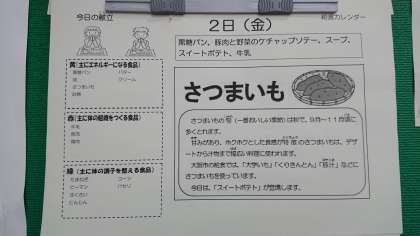 今日の献立
給食カレンダー
2日（金）
黒糖パン、豚肉と野菜のケチャップソテー、スープ、
スイートポテト、牛乳
黄（主にエネルギーになる食品）
黒糖パン
バター
油
クリーム
さつまいも
砂糖
赤（主に体の組織をつくる食品）
牛乳
豚肉
鶏肉
緑（主に体の調子を整える食品）
たまねぎ
コーン
ピーマン
パセリ
はくさい
にんじん
さつまいも
さつまいもの旬（一番おいしい季節）は秋で、9月～11月頃に
多くとれます。
甘みがあり、ホクホクとした食感が特徴のさつまいもは、デザ
ートから汁物まで幅広い料理に使われます。
大阪市の給食では、「大学いも」「くりきんとん」「豚汁」などに
さつまいもを使っています。
今日は、「スイートポテト」が登場します。